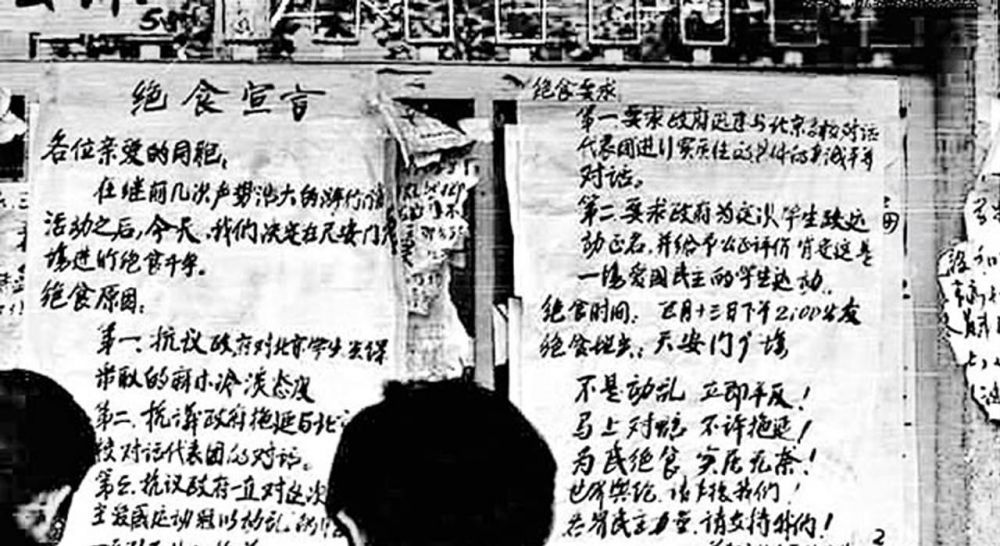 绝食宣言
各位亲爱的同胞：
在继前几次声势浩大的游行
活动之后，今天，我们决定在天安门广
场进行绝食斗争。
绝食原因：
第一、抗议政府对北京学生罢课
采取的麻木冷淡态度
第二、抗议政府拖延与北
校对话代表团的对话。
第三、抗议政府一直对这次
主爱国运动冠以动乱的
绝食要求
第一要求政府迅速与北京高校对话
代表团进行实质性的具体的真诚平等
对话。
第二要求政府为这次学生政运
动正名，并给予公正评价肯定这是
一场爱国民主的学生运动。
绝食时间：五月十三日下午2:00出发
绝食地点：天安门广场
不是动乱 立即平反！
马上对话 不许拖延！
为民绝食 实属无奈！
世界舆论 请声援我们！
各界民主力量，请支持我们！
2